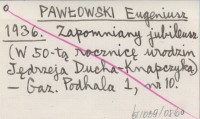 PAWŁOWSKI Eugeniusz
1936. Zapomniany jubileusz.
(W 50-tą rocznicę urodzin
Jędrzeja Ducha-Knapczyka)
— Gaz. Podhala 1, nr 10.